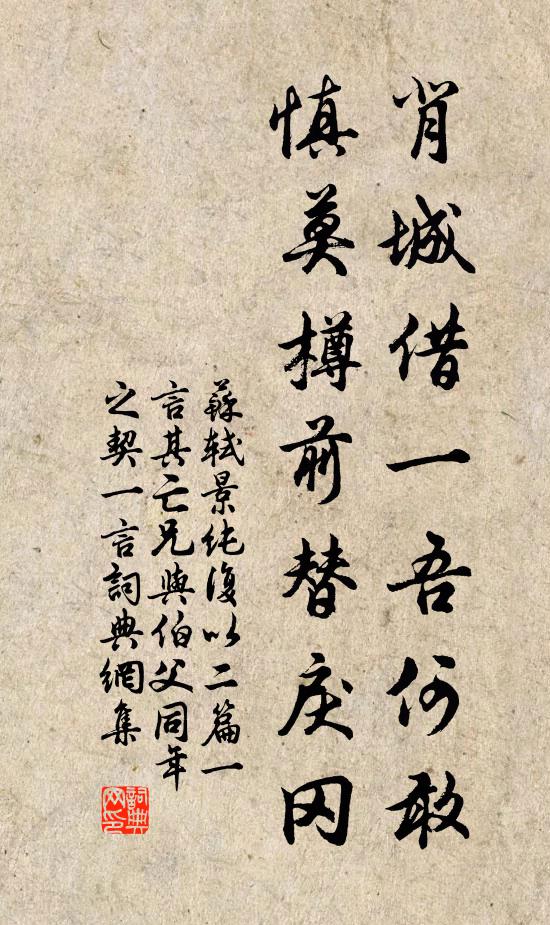 背城借一吾何敢
慎莫樽前替戾冈
蘇軾景純復以二篇一
言其亡兄與伯父同年
之契一言詞典網集
詞典網印